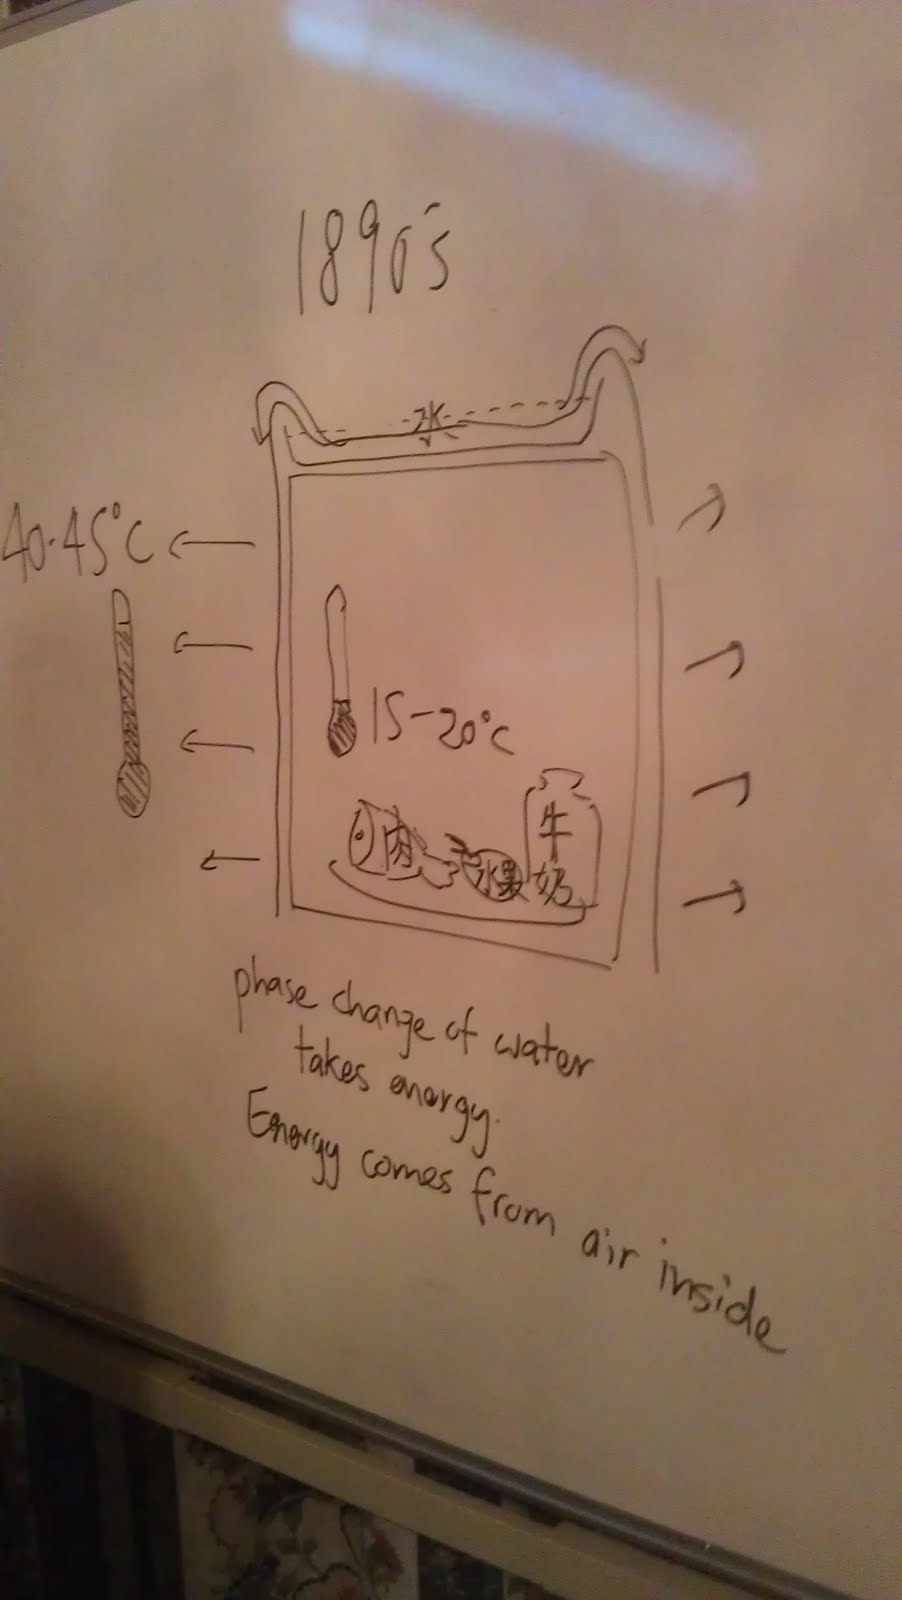 1890's
水
40-45°C
15-20°C
肉
水果
牛
奶
phase change of water
takes energy.
Energy comes from air inside